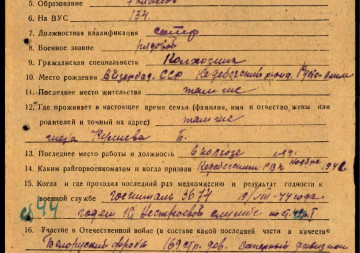 5. Образование
6. На ВУС 134
7. Должностная квалификация сапер
8. Военное звание рядовой
9. Гражданская специальность Колхозник
10. Место рождения Азербад. ССР Кедабекский р-он,
11. Последнее место жительства там же
12. Где проживает в настоящее время семья (фамилия, имя и отчество жены или
родителей и точный их адрес) там же
Б.
13. Последнее место работы и должность в колхозе
14. Каким райгорвоенкоматом и когда призван Кедабекским РВК
15. Когда и где проходил последний раз медкомиссию и результат годности к
военной службе Госпиталь 3677 19/VIII-44 года
44 годен к нестроевой службе по
16. Участие в Отечественной войне (в составе какой последней части и качестве
Белорусский фронт 169 стр. див. Саперный дивизион